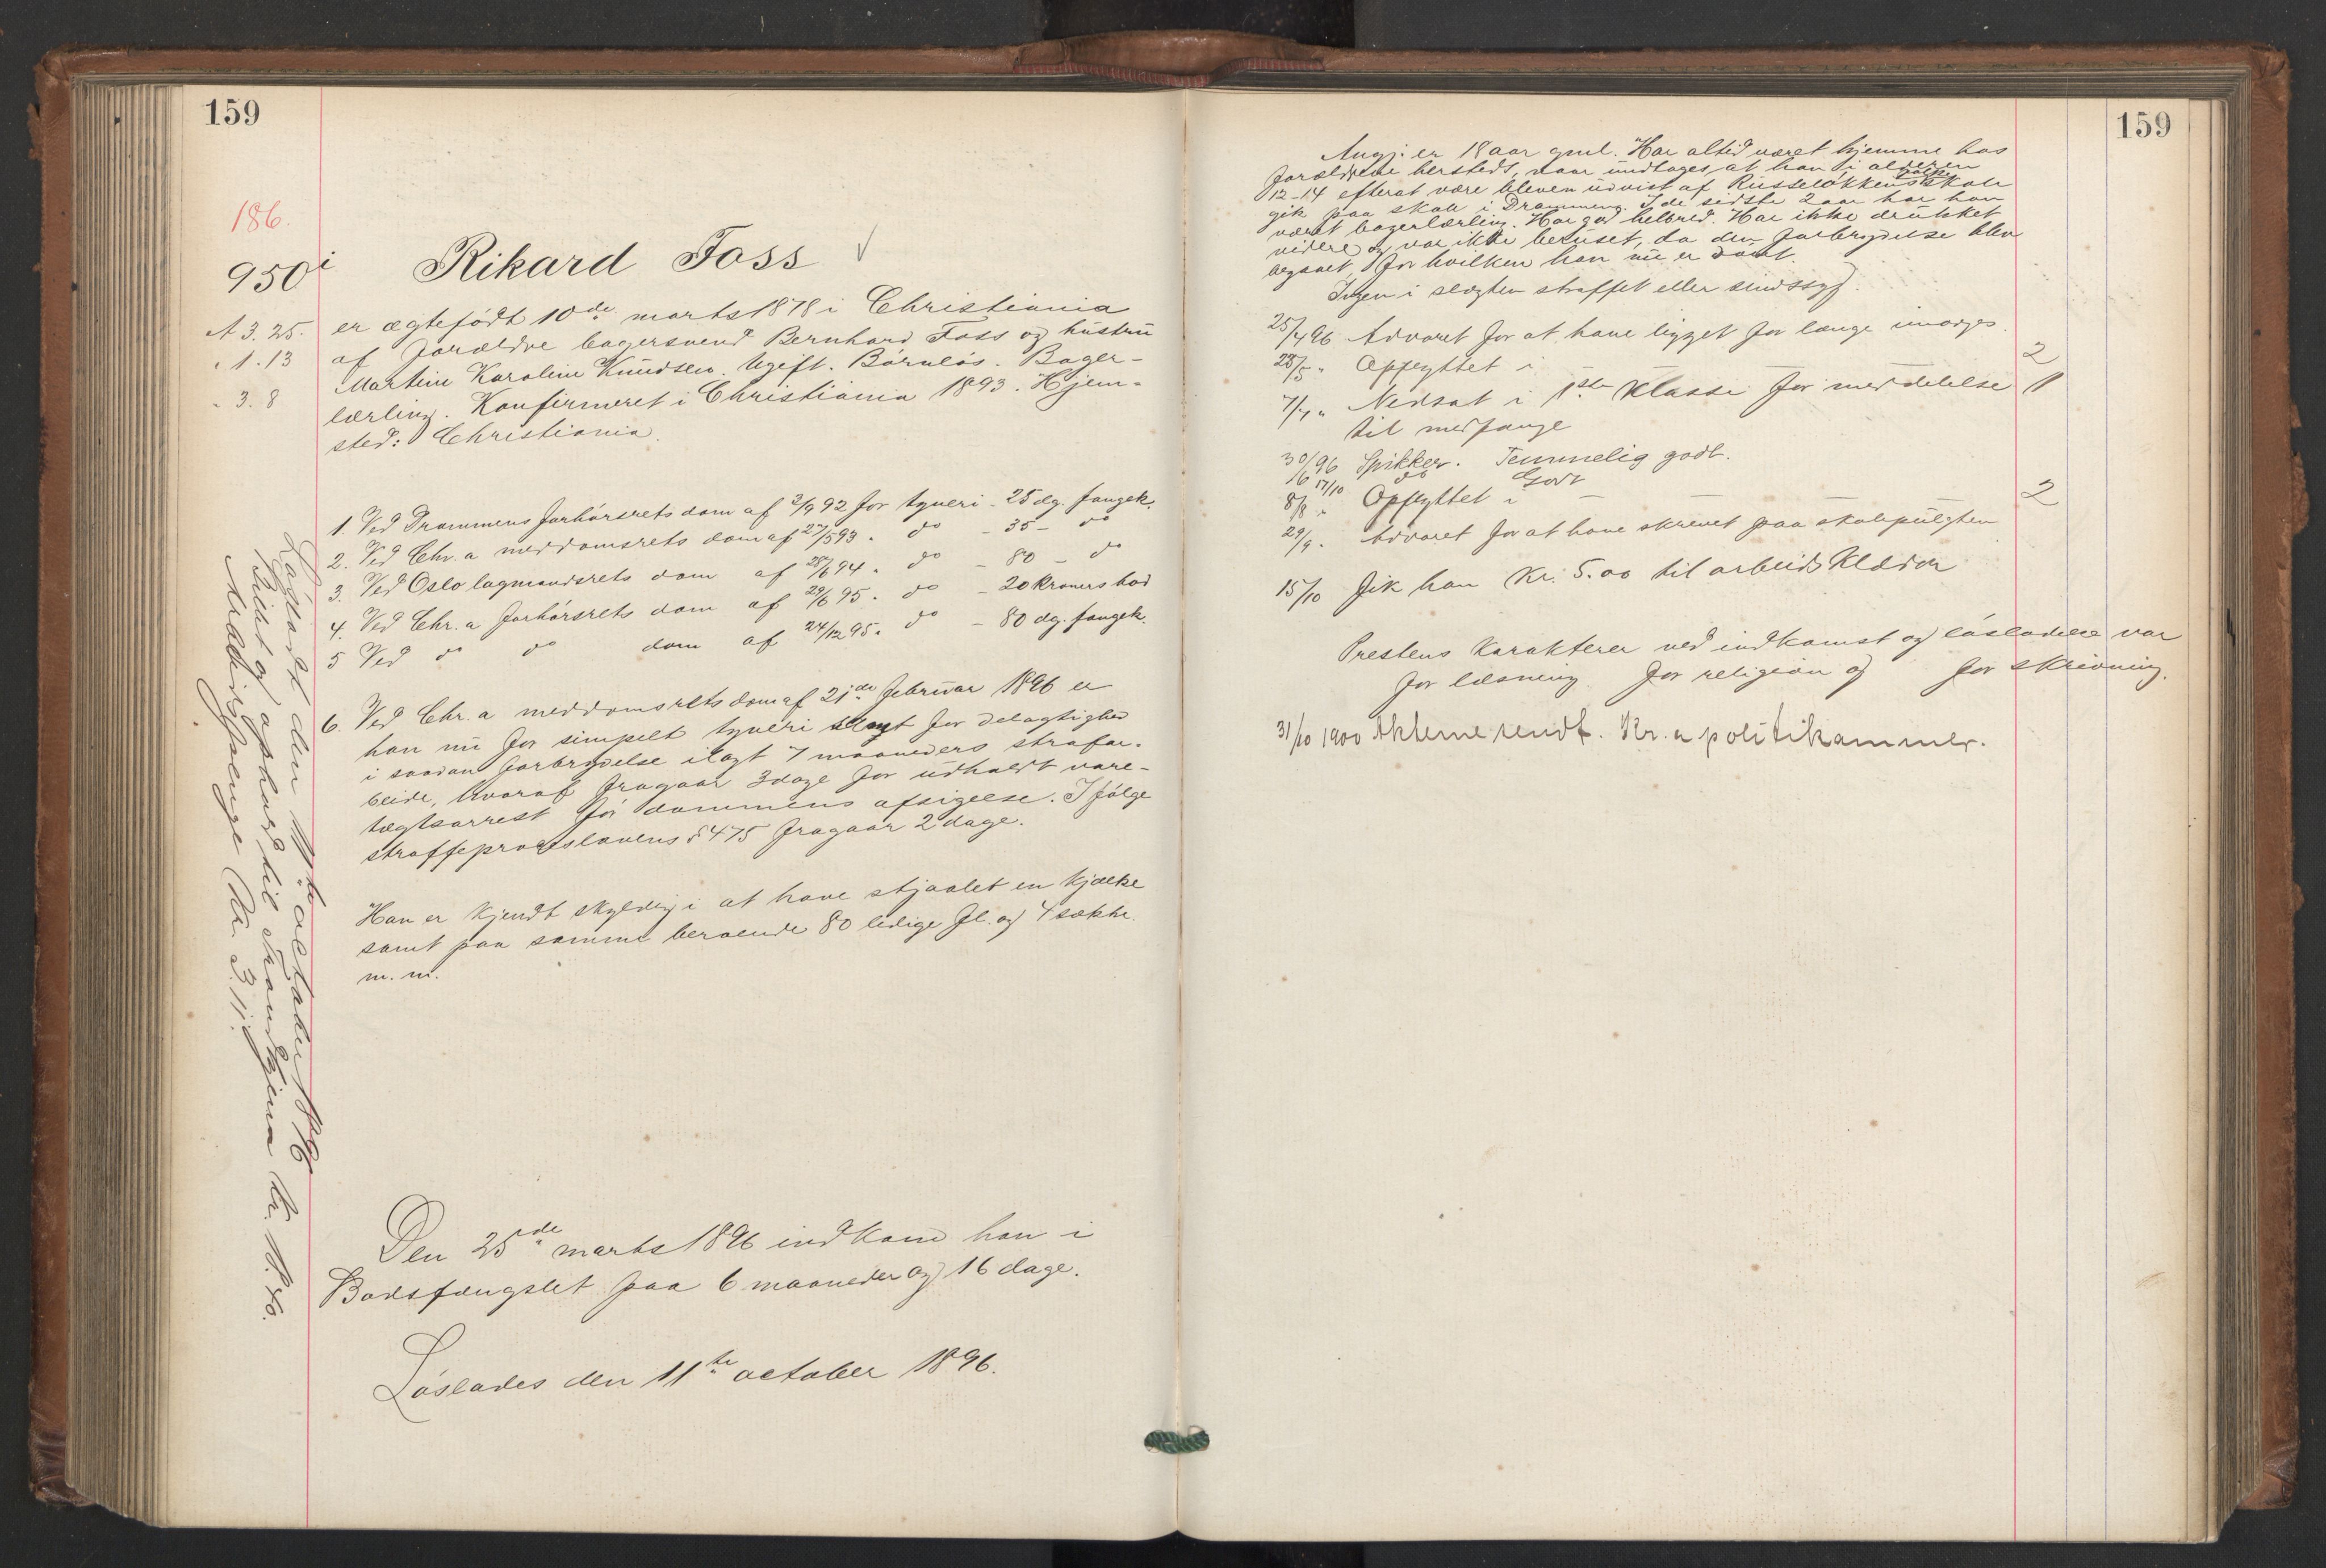 159
186.
950 i Rikard Foss
A 3. 25.
" 1. 13
" 3. 8
er ægtefödt 10de marts 1878 i Christiania
af forældre bagersvend Bernhard Foss og hustru
Martine Karoline Knudsen. Ugift. Börnlös. Bager-
lærling. Konfirmeret i Christiania 1893. Hjem-
sted: Christiania.
1. Ved Drammens forhörsrets dom af 2/9 92 for tyveri - 25 dg. fængsl.
2. Ved Chr.a meddomsrets dom af 27/5 93 " do - 35 - do
3. Ved Oslo lagmandsrets dom af 28/6 94 " do - 80 - do
4. Ved Chr.a forhörsrets dom af 29/6 95 " do - 20 kroners bod
5 Ved do do dom af 24/12 95 " do - 80 dg. fængsl.
6. Ved Chr.a meddomsrets dom af 21de februar 1896 er
han nu for simpelt tyveri samt for delagtighed
i saadan forbrydelse ilagt 7 maaneders strafar-
beide, hvoraf fragaar 3 dage for udholdt vare-
tægtsarrest för dommens afsigelse. Ifölge
straffeproceslovens § 475 fragaar 2 dage.
Han er kjendt skyldig i at have stjaalet en kjælke
samt paa samme beroende 80 ledige fl. og 4 sække
m. m.
Den 25de marts 1896 indkom han i
Bodsfængslet paa 6 maaneder og 16 dage.
Löslades den 11te october 1896.
Lösladt den 11te october 1896
Billet og ophold til Trondhjem kr.
Arbeidspenge Kr. 3.11.
159
Angj. er 18 aar gml. Har altid været hjemme hos
forældrene hersteds, naar undtages, at han i alderen
12-14 efterat være bleven udvist af Ruselökkens folkeskole
gik paa skole i Drammen. I de sidste 2 aar har han
været bagerlærling. Har god helbred. Har ikke drukket
videre og var ikke beruset, da den forbrydelse blev
begaaet, for hvilken han nu er dömt.
Ingen i slægten straffet eller sindssyg.
25/4 96 Advaret for at have ligget for længe imorges.
28/5 " Opflyttet i — — — 2
7/7 " Nedsat i 1ste Klasse for meddelelse 1
til medfange
30/6 96 Spikker. Temmelig godt.
17/10 do Godt
8/8 " Opflyttet i — — — 2
29/9 " Advaret for at have skrevet paa skolepulten
15/10 fik han Kr. 5.00 til arbeidsklæder
Prestens karakterer ved indkomst og lösladelse var
for læsning for religion og for skrivning.
31/10 1900 Akterne sendt. Kr.a politikammer.